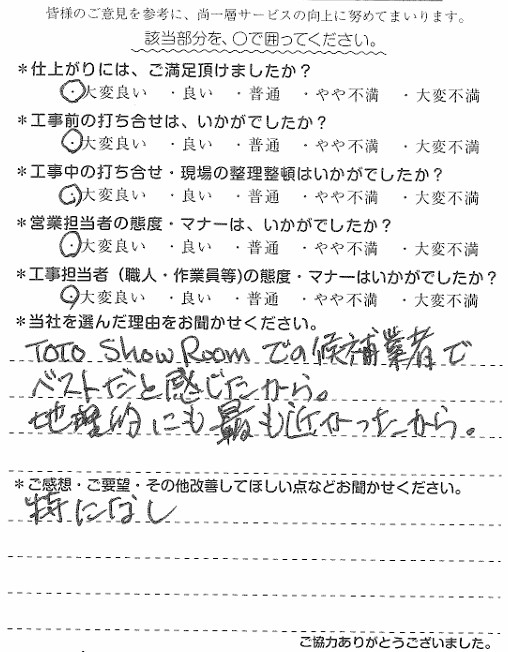 皆様のご意見を参考に、尚一層サービスの向上に努めてまいります。
該当部分を、〇で囲ってください。
＊仕上がりには、ご満足頂けましたか？
・大変良い ・良い ・普通 ・やや不満 ・大変不満
＊工事前の打ち合せは、いかがでしたか？
・大変良い ・良い ・普通 ・やや不満 ・大変不満
＊工事中の打ち合せ・現場の整理整頓はいかがでしたか？
・大変良い ・良い ・普通 ・やや不満 ・大変不満
＊営業担当者の態度・マナーは、いかがでしたか？
・大変良い ・良い ・普通 ・やや不満 ・大変不満
＊工事担当者（職人・作業員等)の態度・マナーはいかがでしたか？
・大変良い ・良い ・普通 ・やや不満 ・大変不満
＊当社を選んだ理由をお聞かせください。
TOTO Show Room での候補業者で
ベストだと感じたから。
地理的にも最も近かったから。
＊ご感想・ご要望・その他改善してほしい点などお聞かせください。
特になし
ご協力ありがとうございました。